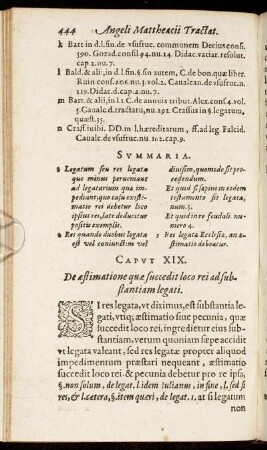 444 Angeli Mattheacii Tractat.
k Bart in d.l.fin.de vsufruc. communem Decius consi.
590. Gozad.consil.94.nu.24. Didac.variar.resolut.
cap.2.nu.7.
l Bald. & alii, in d.l.fin.§.fin autem, C. de bon.quæ liber.
Ruin cons.206.nu.3.vol.2. Caualcan.de vsufruc.n.
219. Didac.d.cap.2.nu.7.
m Bart. & alii, in l.1. C. de annuis tribut. Alex.cons.4.vol.
5. Caualc.d.tractatu, nu.292. Crassus in §.legatum,
quæst.35.
n Crass.inibi. DD.in l.hæreditarum, ff.ad leg. Falcid.
Caualc.de vsufruc.nu.162.cap.9.
SVMMARIA.
1 Legatum seu res legatæ
quo minus perueniant
ad legatarium quæ impediant;
que casu æstimatio
rei debetur loco
ipsius rei, late deducitur
positis exemplis.
2 Res quando duobus legata
est vel coniunctim vel
diuisim, quomodo sit procedendum.
Et quid si sæpius in eodem
testamento sit legata,
num.3.
Et quid in re feudali numero
4.
5 Res legata Ecclesiæ, an æstimatio
debeatur.
CAPVT XIX.
De æstimatione quæ succedit loco rei ad substantiam
legati.
SI res legata, vt diximus, est substantia legati,
vtiq; æstimatio siue pecunia, quæ
succedit loco rei, ingreditur eius substantiam,
verum quoniam sæpe accidit
vt legata valeant, sed res legatæ propter aliquod
impedimentum præstari nequeant, æstimatio
succedit loco rei & pecunia debetur pro re ipsa,
§.non solum, de legat. l.idem Iulianus, in fine, l.sed si
res, & l.cætera, §.item quæri, de legat.1. at si legatum
non